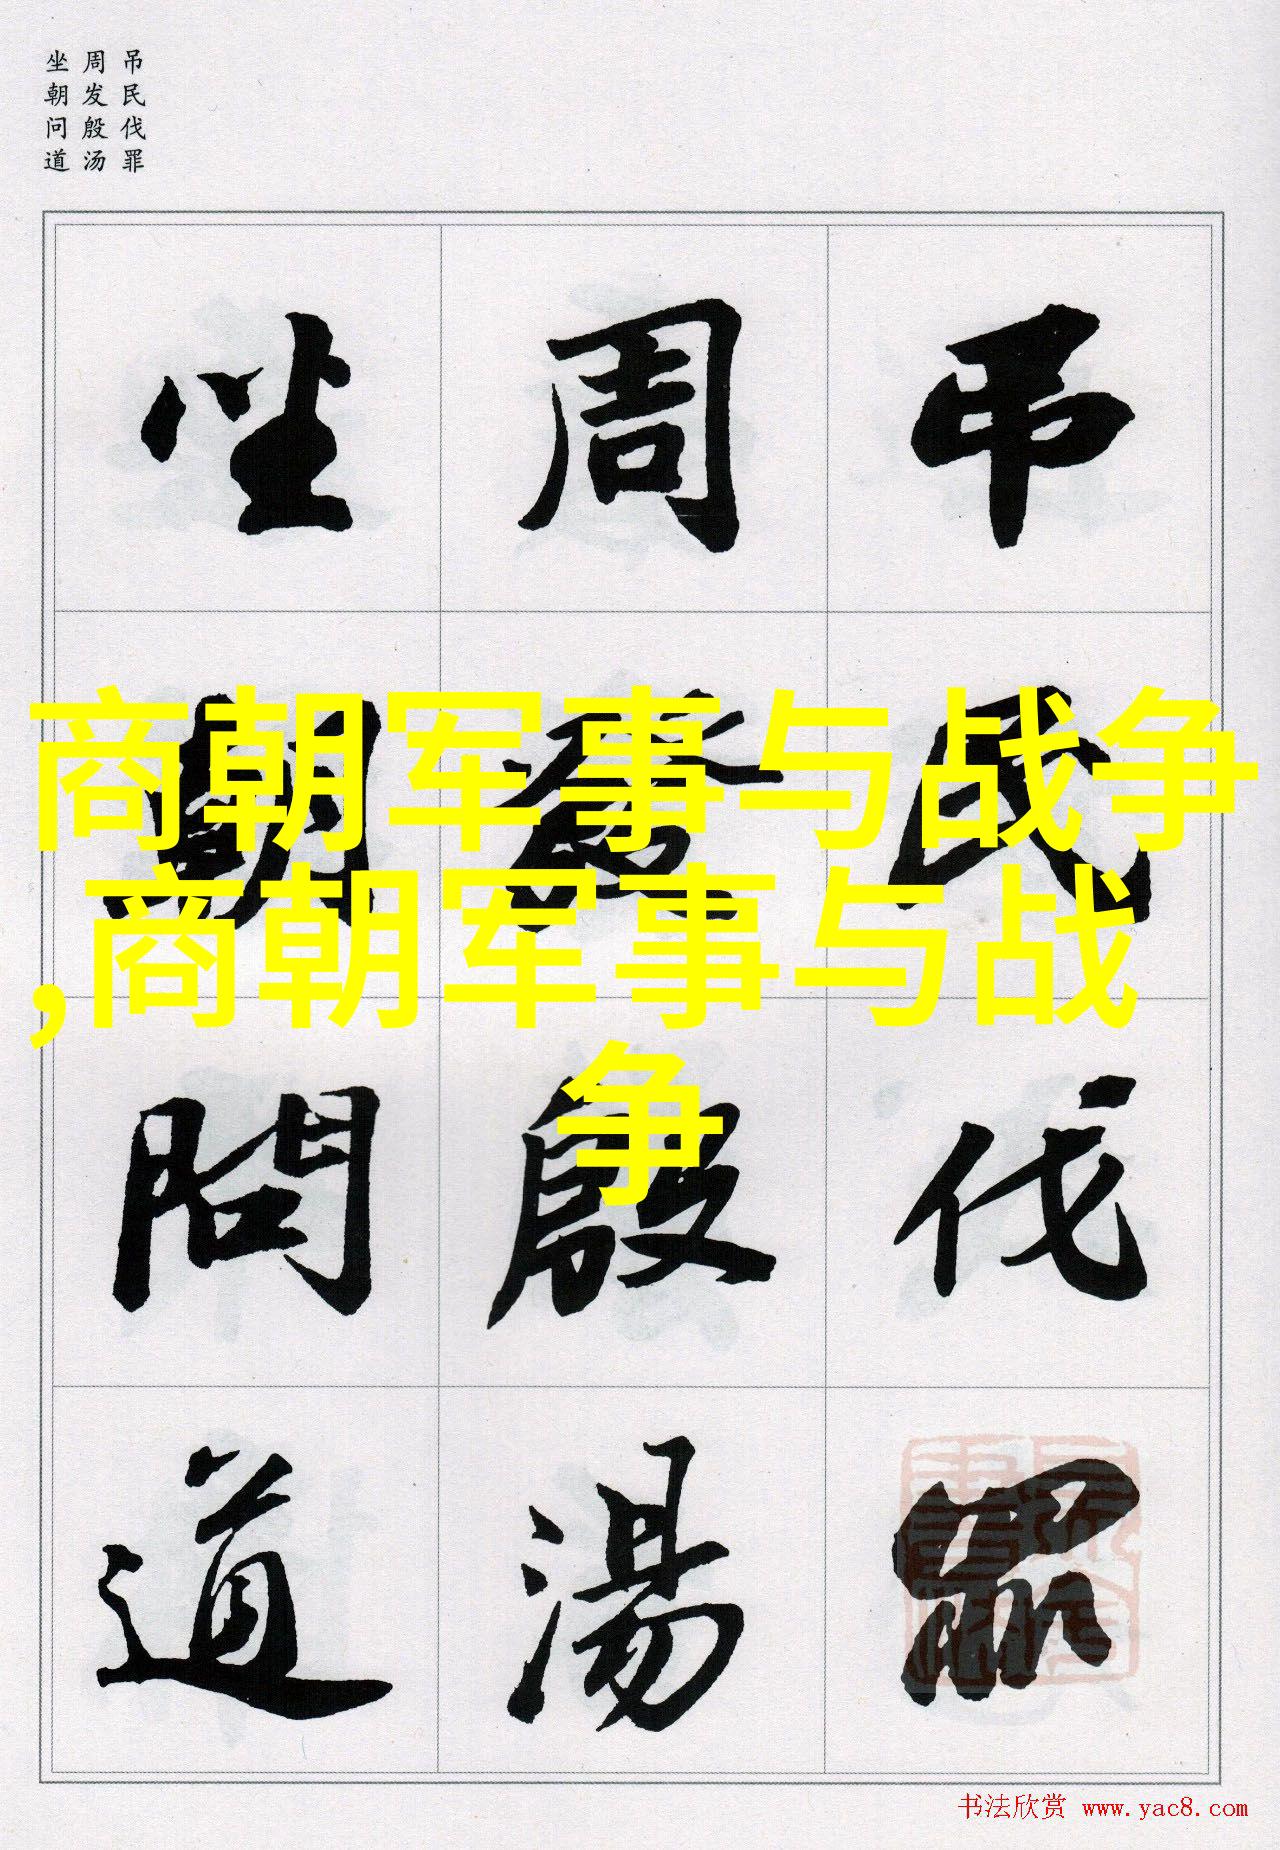 吊民伐罪
周发殷汤
坐朝问道
吊民伐罪
周發殷湯
坐朝問道
商朝军事与战争
,商朝军事与战
争
书法欣赏 www.yac8.com